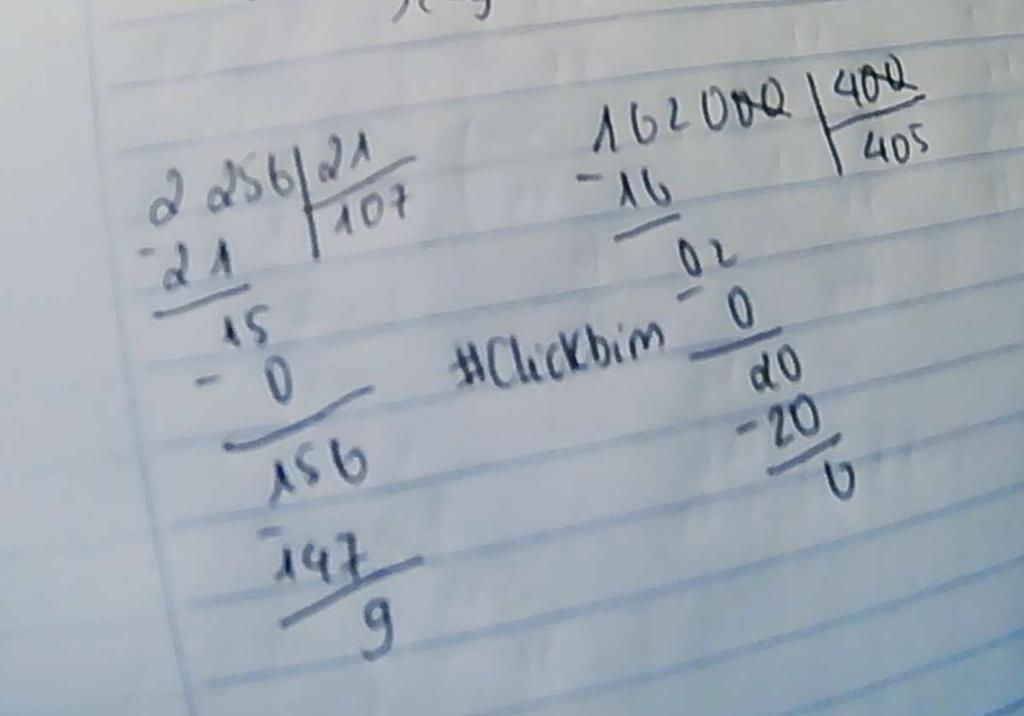 2 256 | 21
107
- 21
15
- 0
156
- 147
9
#Clickbim
162000 | 400
405
- 16
02
- 0
20
- 20
0